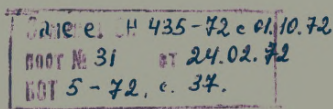 Замене е. СН 435-72 с 01.10.72
пост № 31 от 24.02.72
БСТ 5-72, с. 37.